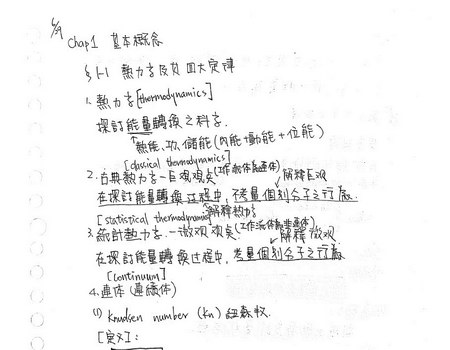 6/9
Chap1 基本概念
§1-1 熱力学及其四大定律
1. 熱力学[thermodynamics]
探討能量轉換之科学.
熱能、功、儲能(內能+動能+位能)
[classical thermodynamics]
2. 古典熱力学—巨观观点(工作流体為連体) 解釋巨观
在探討能量轉換过程中,不考量個別分子之行為.
[statistical thermodynamics] 解釋熱力学
3. 統計熱力学.—微观观点(工作流体為非連体) 解釋微观
在探討能量轉換过程中,考量個別分子之行為
[continuum]
4. 連体(連續体)
(1) Knudsen number (Kn) 紐森數.
[定义]: